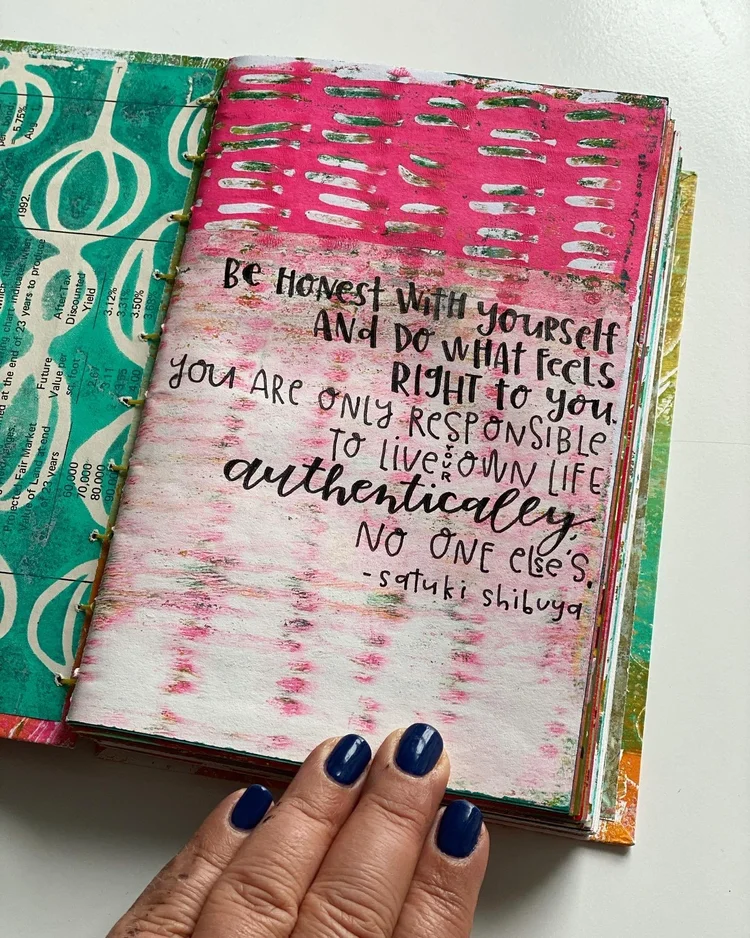 5.75%
1992.
ing chart indicates when
at the end of 23 years to produce
Projected Fair Market
Value of Land at end
of 23 years
60,000
70,000
80,000
Future
Value per
sq. foot
After Tax
Discounted
Yield
3.12%
3.50%
BE HONEST WITH YOURSELF
AND DO WHAT FEELS
RIGHT TO YOU.
YOU ARE ONLY RESPONSIBLE
TO LIVE YOUR OWN LIFE
authentically,
NO ONE ELSE'S.
-satuki shibuya